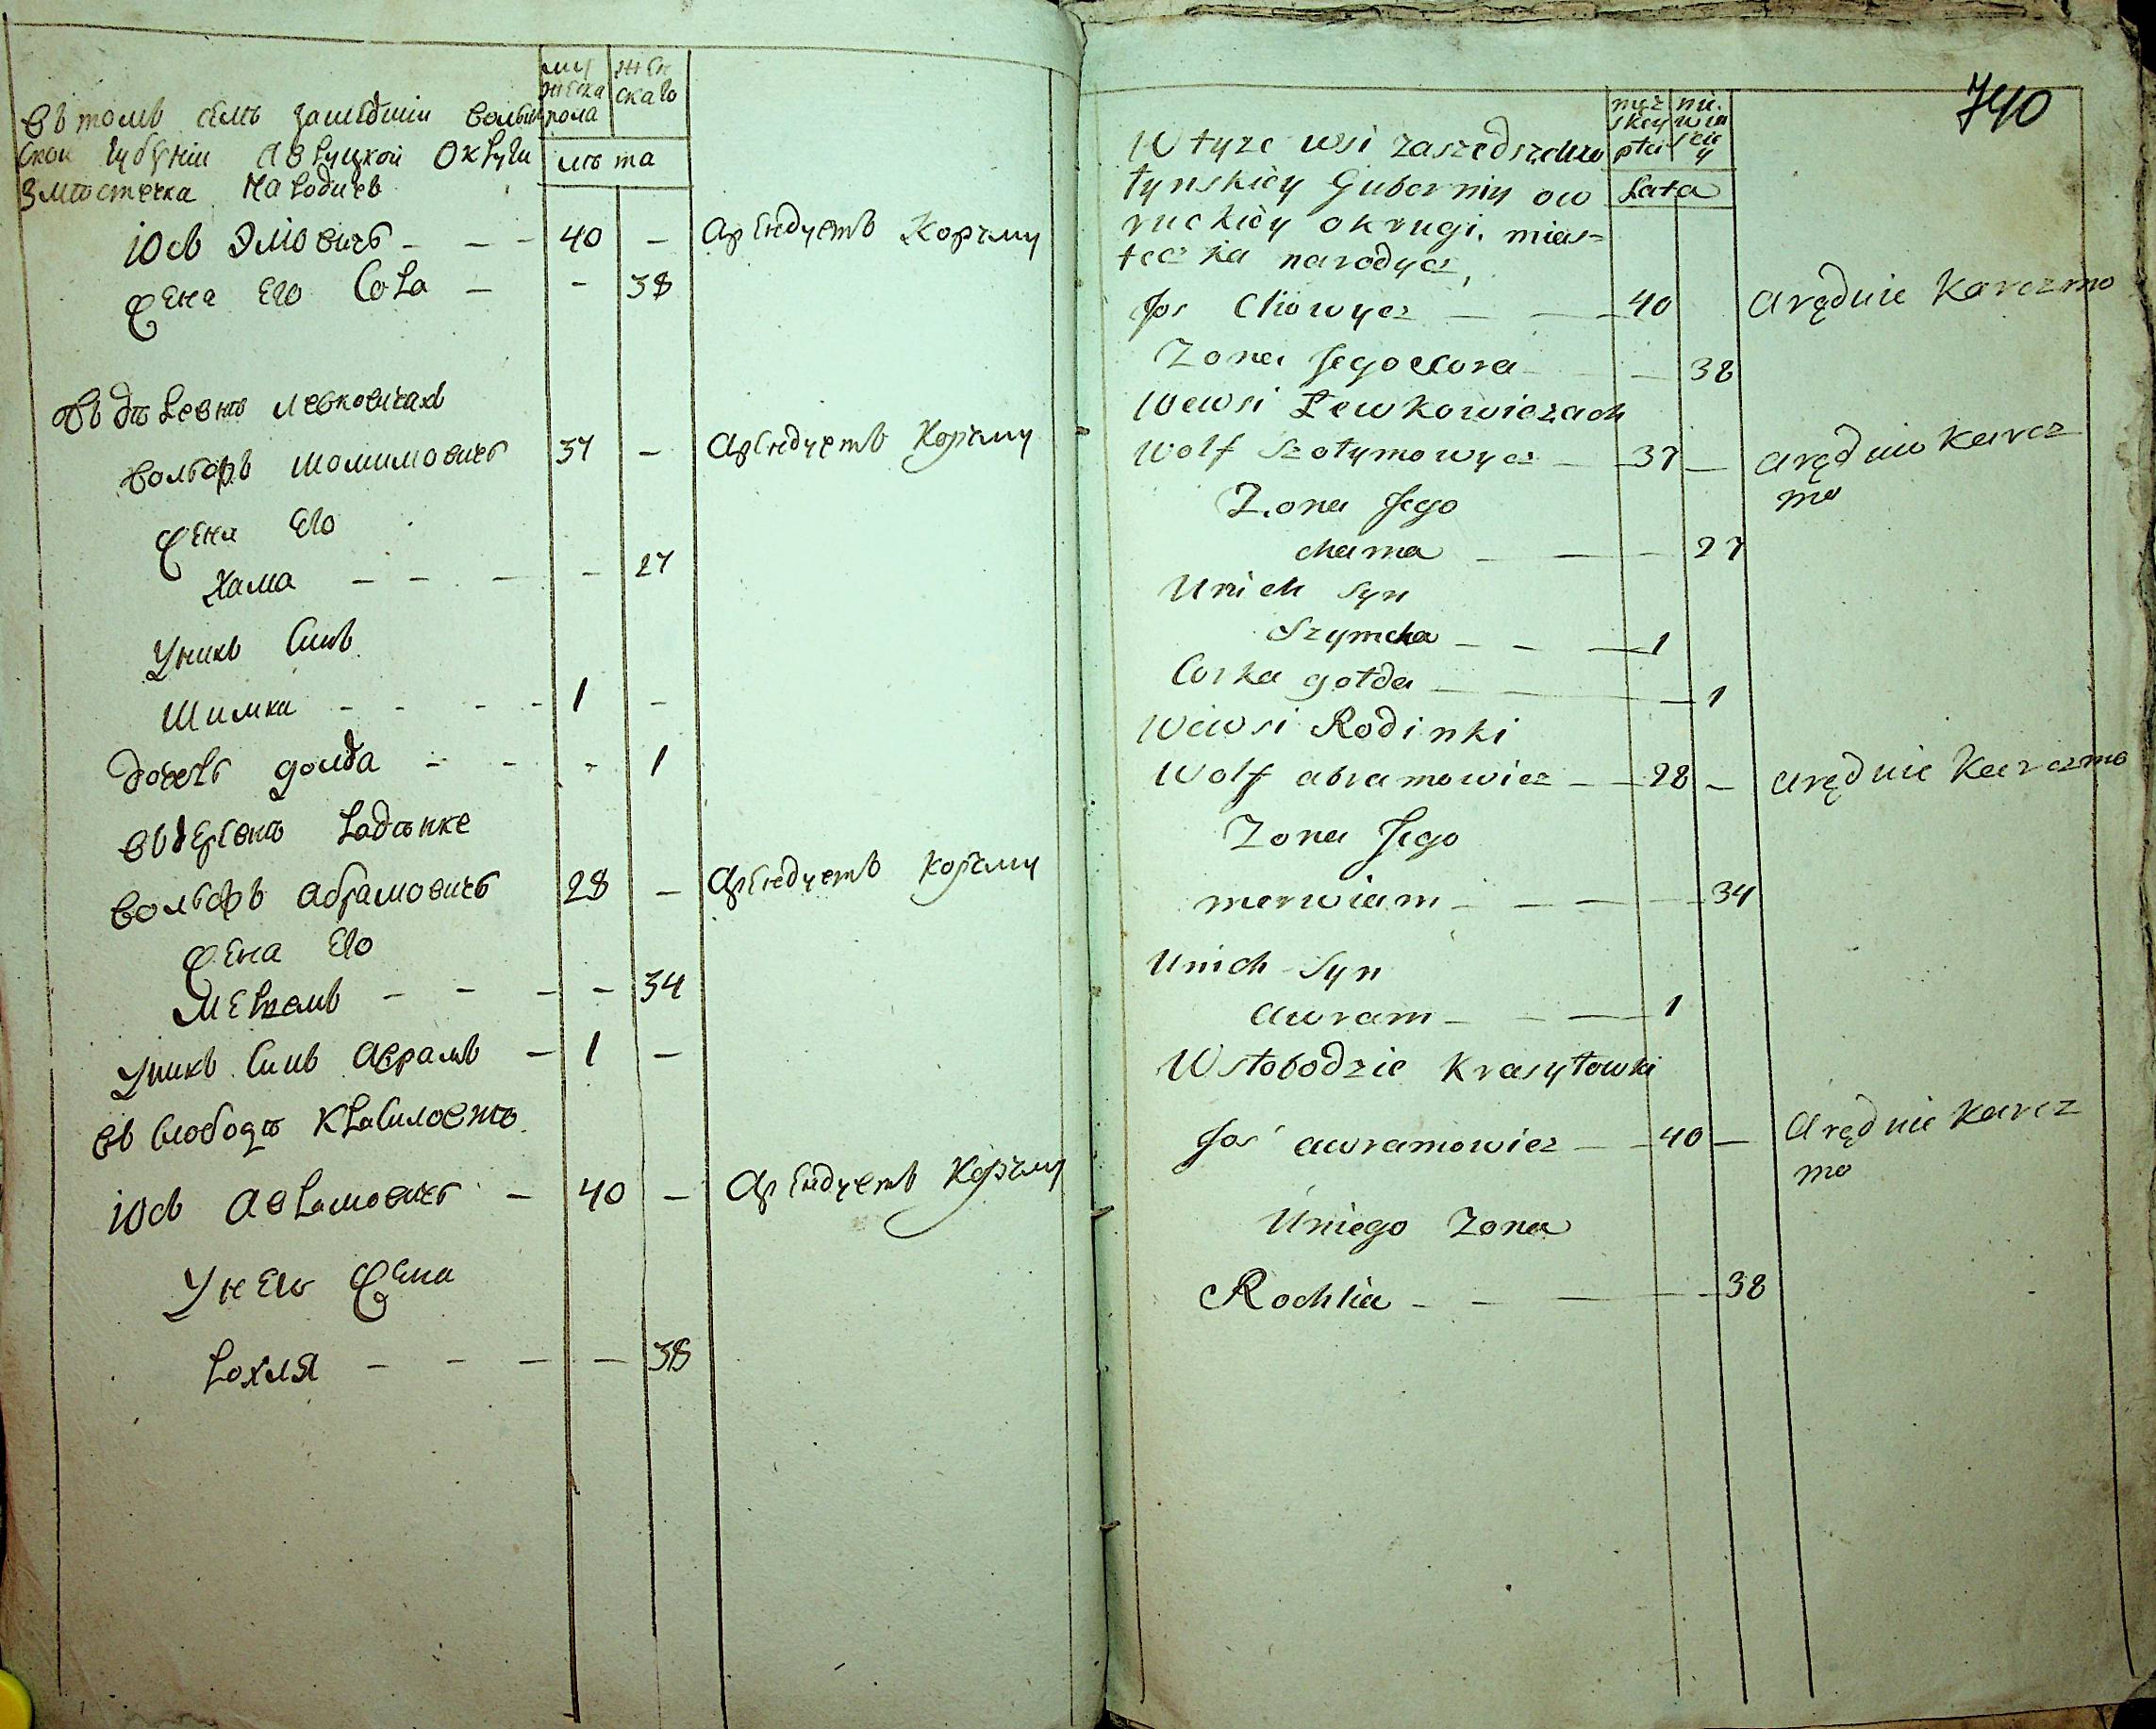 му
жеска
пола
жен
скаго
лѣ та
въ томъ селѣ зашедшіи волын
ской губерніи Авруцкой Округи
змѣстечка Народичъ
Іосъ Эліовичъ - - - 40 - Арендуетъ Корчму
Жена Его Сора - - 38
въ деревнѣ левковичахъ
волфъ шолимовичъ 37 - Арендуетъ Корчму
Жена Его
Хама - - - - 27
Унихъ Синъ
Шимха - - - - 1 -
дочеръ голда - - - 1
въ деревнѣ радѣнке
волфъ абрамовичъ 28 - Арендуетъ Корчму
Жена Его
Мерѣамъ - - - - 34
Унихъ Синъ Аврамъ - 1 -
въ слободѣ Красиловкѣ
Іосъ Аврамовичъ - 40 - Арендуетъ Корчму
У него Жена
рохля - - - - 38
740
męz
skey
płci
nie.
wia
sciey
Lata
W tyze wsi zaszedszewo
łynskiey Guberniy ow
ruckiey okrugi. mias=
teczka narodycz
Jos Eliowycz - - 40 aręduie Karczmo
Zona Jego Sora - - 38
Wewsi Lewkowiczach
Wolf Szołymowycz - 37 - aręduie karcz
mo
Zona Jego
chama - - - 27
Unich Syn
Szymcha - - - 1
Corka gołda - - 1
Wewsi Rodinki
Wolf abramowicz - - 28 - aręduie karczmo
Zona Jego
merwiam - - - - 34
Unich Syn
awram - - - 1
Wsłobodzie Krasyłowki
Jos awramowicz - - 40 - aręduie karcz
mo
Uniego Zona
Rochlia - - - - - 38